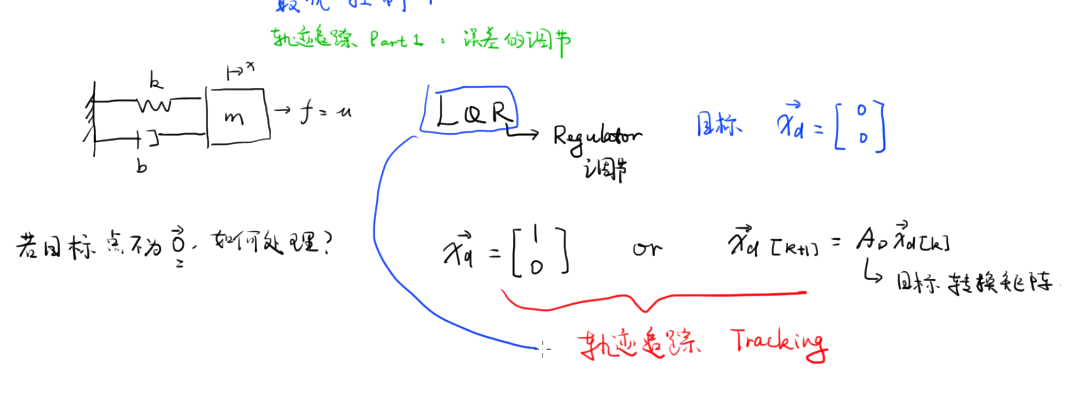 轨迹追踪 Part 1 : 误差的调节
k
x
m
→ f = u
b
LQR
→ Regulator
调节
目标 x⃗d = [0 0]
若目标点不为 0⃗, 如何处理?
x⃗d = [1 0] or x⃗d[k+1] = AD x⃗d[k]
目标转换矩阵
轨迹追踪 Tracking